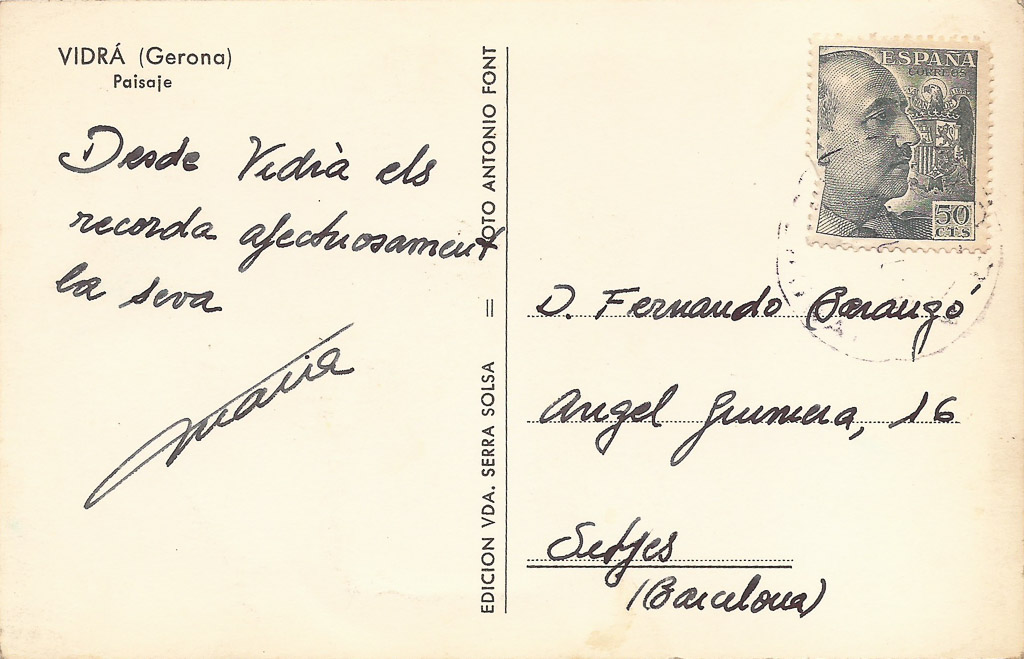 VIDRÁ (Gerona)
Paisaje
Desde Vidrà els
recorda afectuosament
la seva
Maria
EDICION VDA. SERRA SOLSA = FOTO ANTONIO FONT
ESPAÑA
CORREOS
50
CTS
D. Fernando Barangó
Angel Gumera, 16
Setjes
(Barcelona)